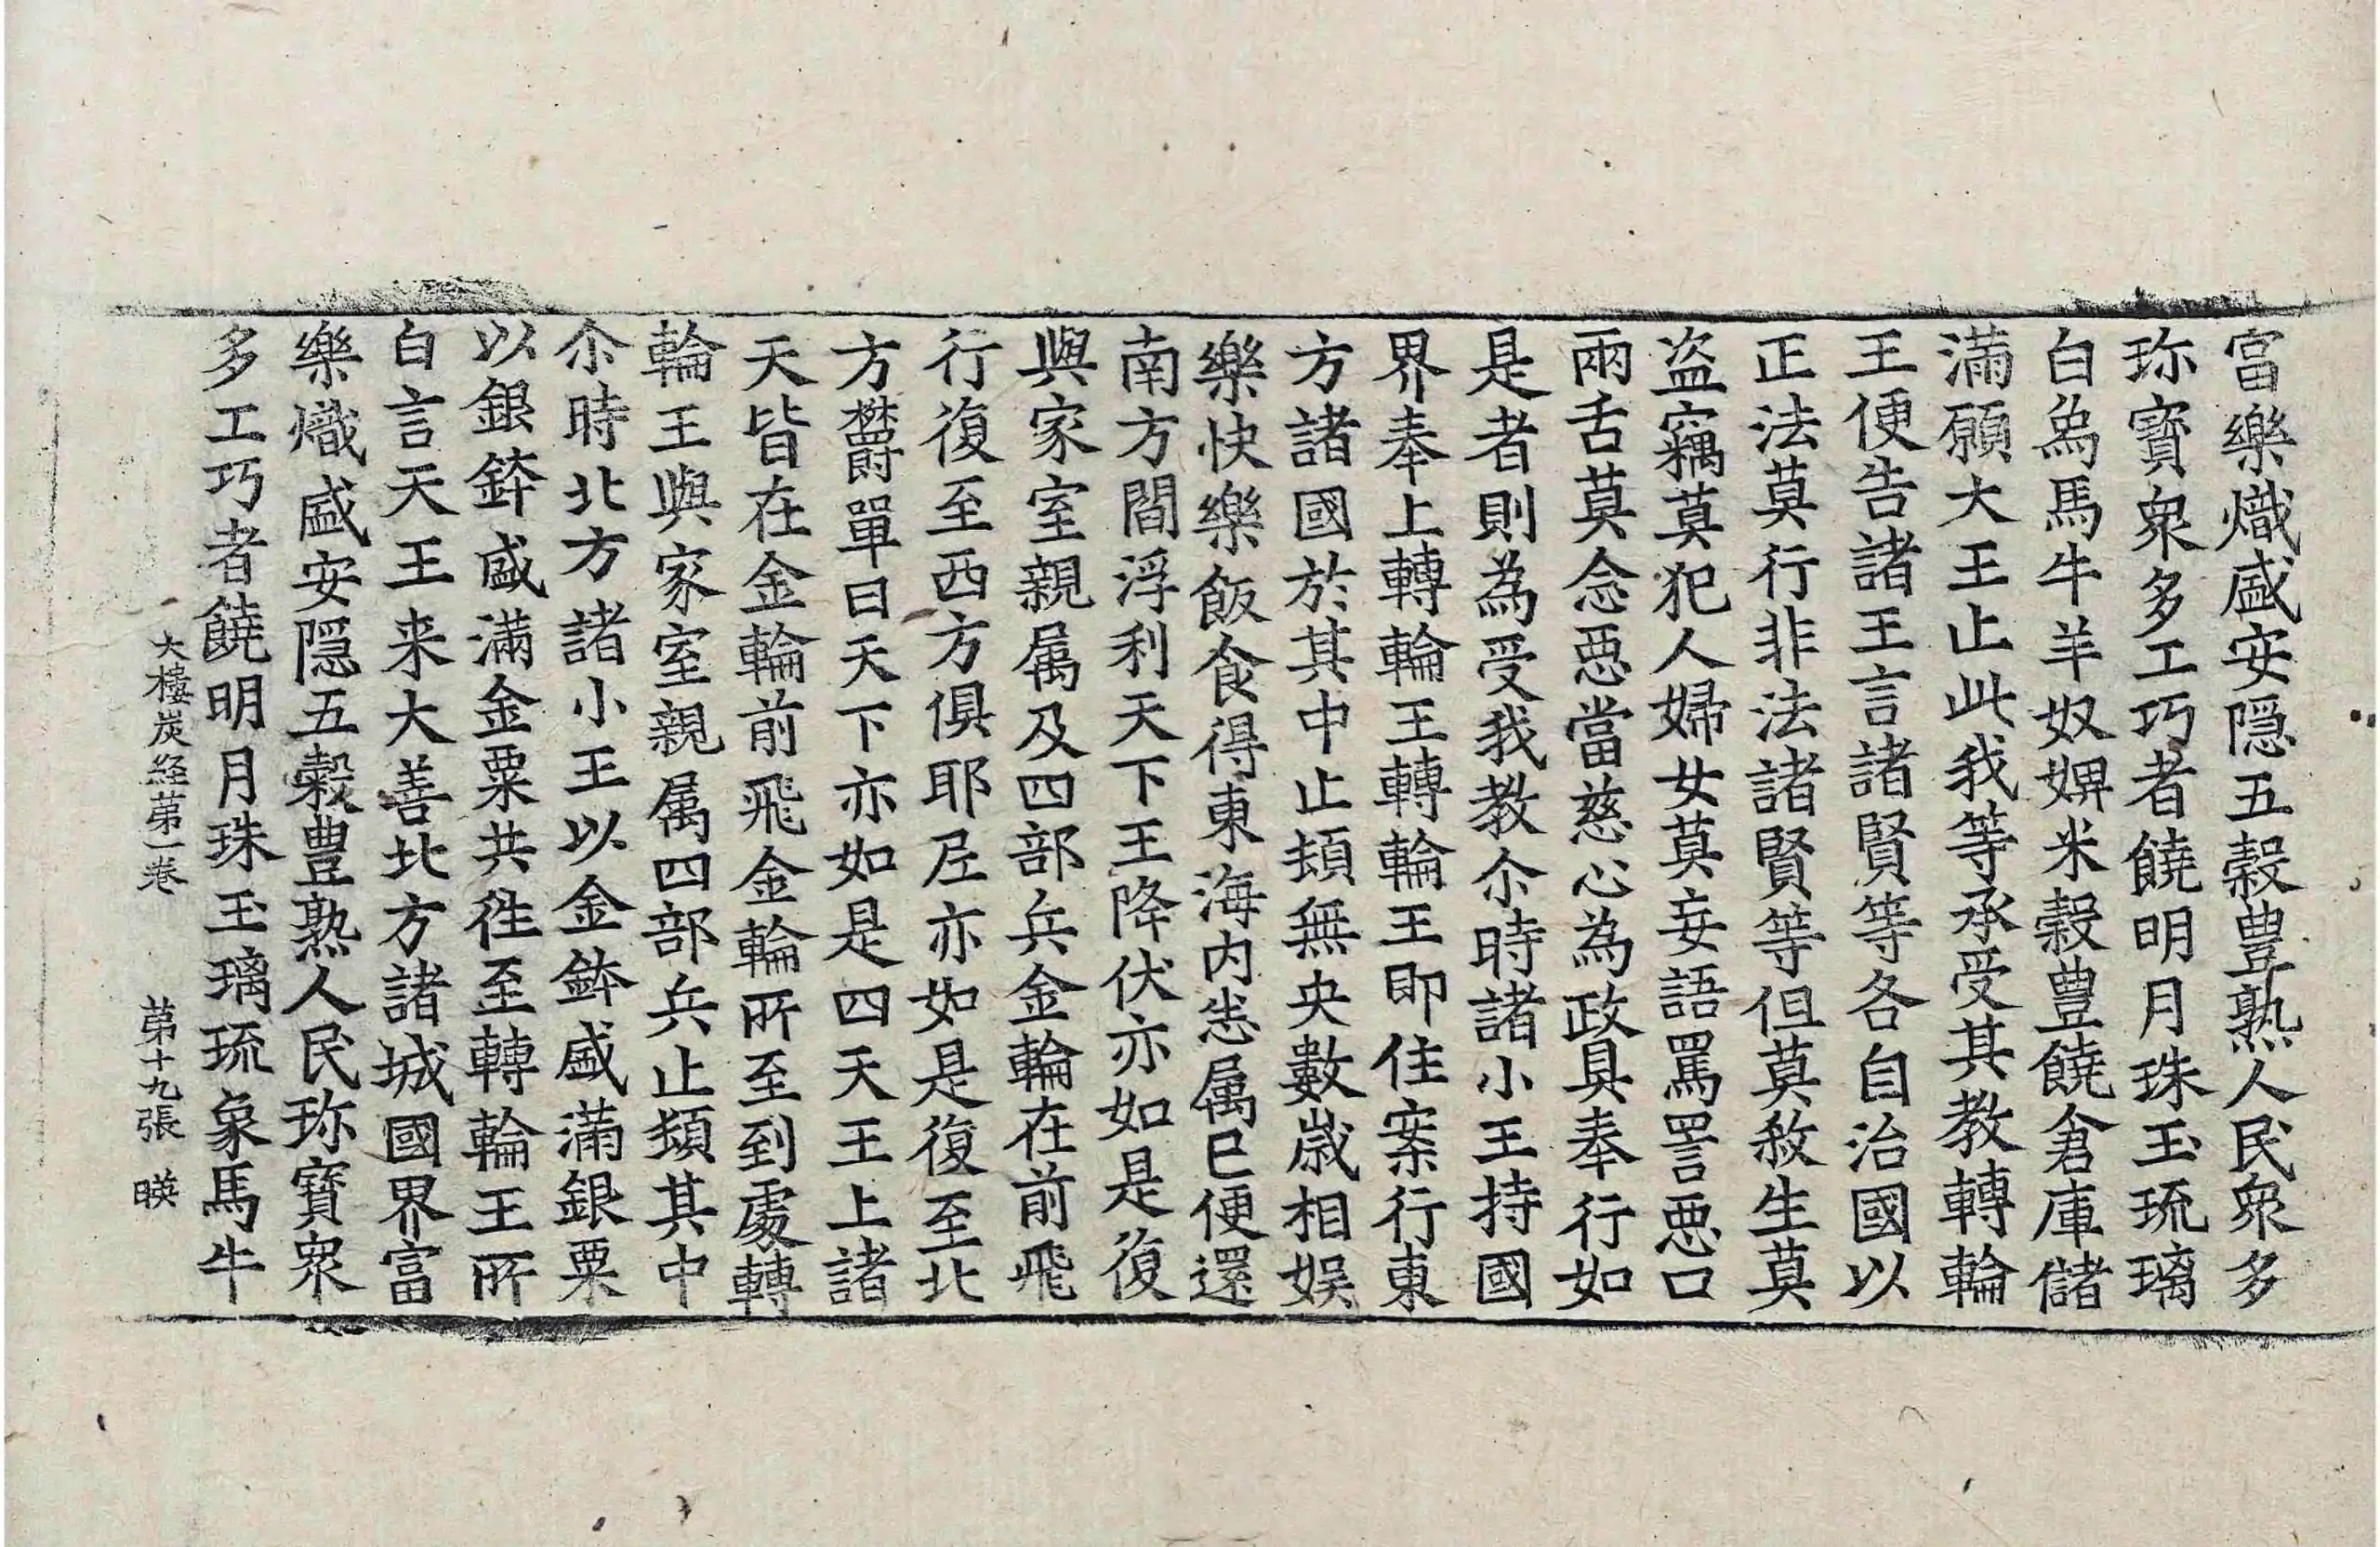 富樂熾盛安隠五穀豊熟人民衆多
珎寳衆多工巧者饒明月珠玉琉璃
白爲馬牛羊奴婢米穀豊饒倉庫儲
滿願大王止此我等承受其教轉輪
王便告諸王言諸賢等各自治國以
正法莫行非法諸賢等但莫煞生莫
盗竊莫犯人婦女莫妄語罵詈惡口
兩舌莫念惡當慈心為政具奉行如
是者則為受我教尒時諸小王持國
界奉上轉輪王轉輪王即住案行東
方諸國於其中止頓無央數歳相娛
樂快樂飯食得東海内悉属已便還
南方閻浮利天下王降伏亦如是復
與家室親属及四部兵金輪在前飛
行復至西方俱耶尼亦如是復至北
方欝單曰天下亦如是四天王上諸
天皆在金輪前飛金輪所至到處轉
輪王與家室親属四部兵止頓其中
尒時北方諸小王以金鉢盛滿銀粟
以銀鉢盛滿金粟共徃至轉輪王所
白言天王来大善北方諸城國界富
樂熾盛安隠五穀豊熟人民珎寳衆
多工巧者饒明月珠玉璃琉象馬牛
大樓炭経苐一卷 苐十九張 暎